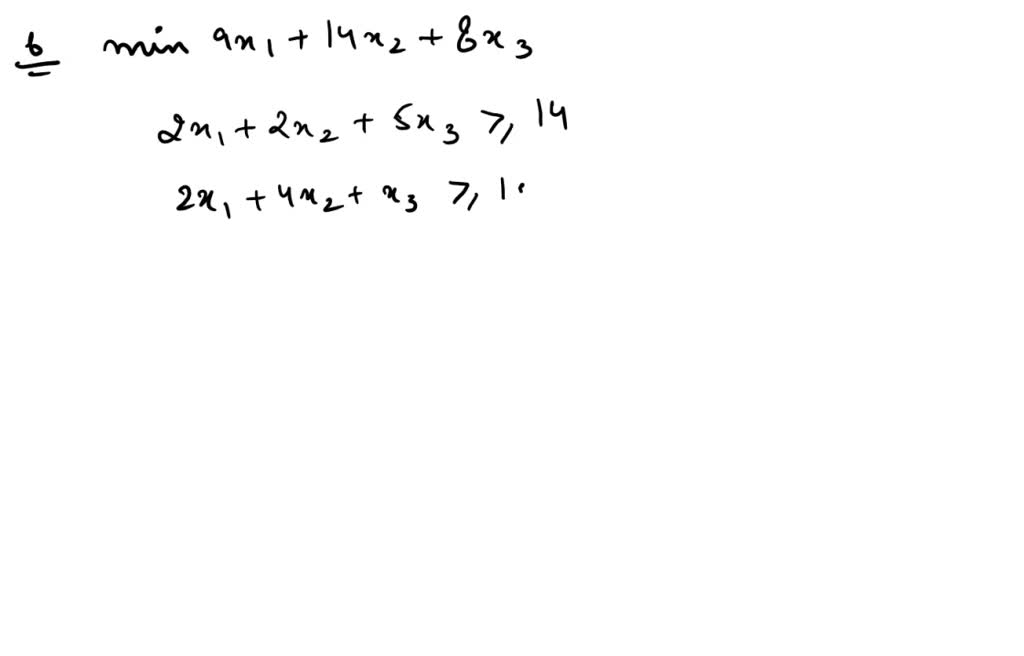 6 min 9x₁ + 14x₂ + 8x₃
2x₁ + 2x₂ + 5x₃ ⩾ 14
2x₁ + 4x₂ + x₃ ⩾ 1